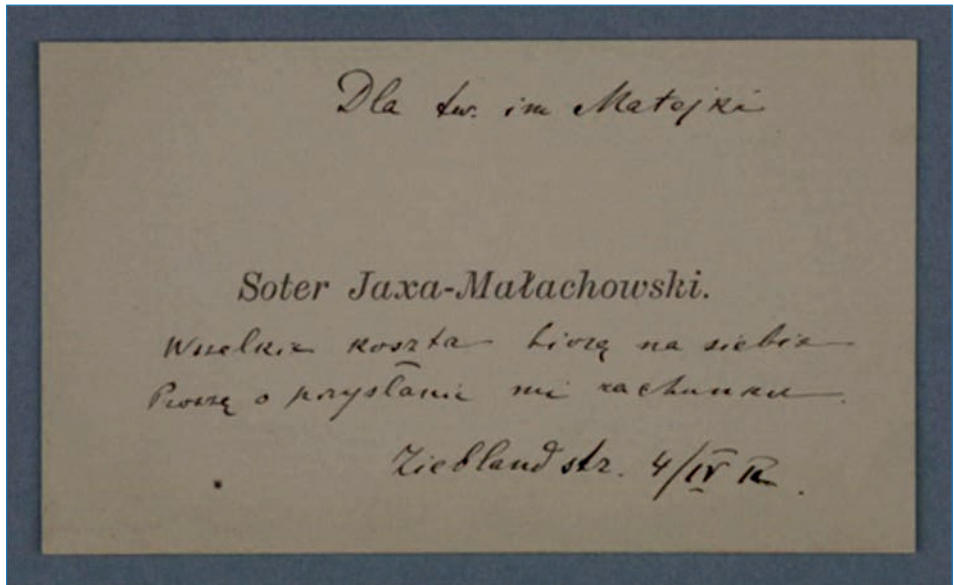 Dla tw. im Matejki
Soter Jaxa-Małachowski.
Wszelkie koszta biorę na siebie
Proszę o przysłanie mi rachunku.
Zieblandstr. 4/IV R.